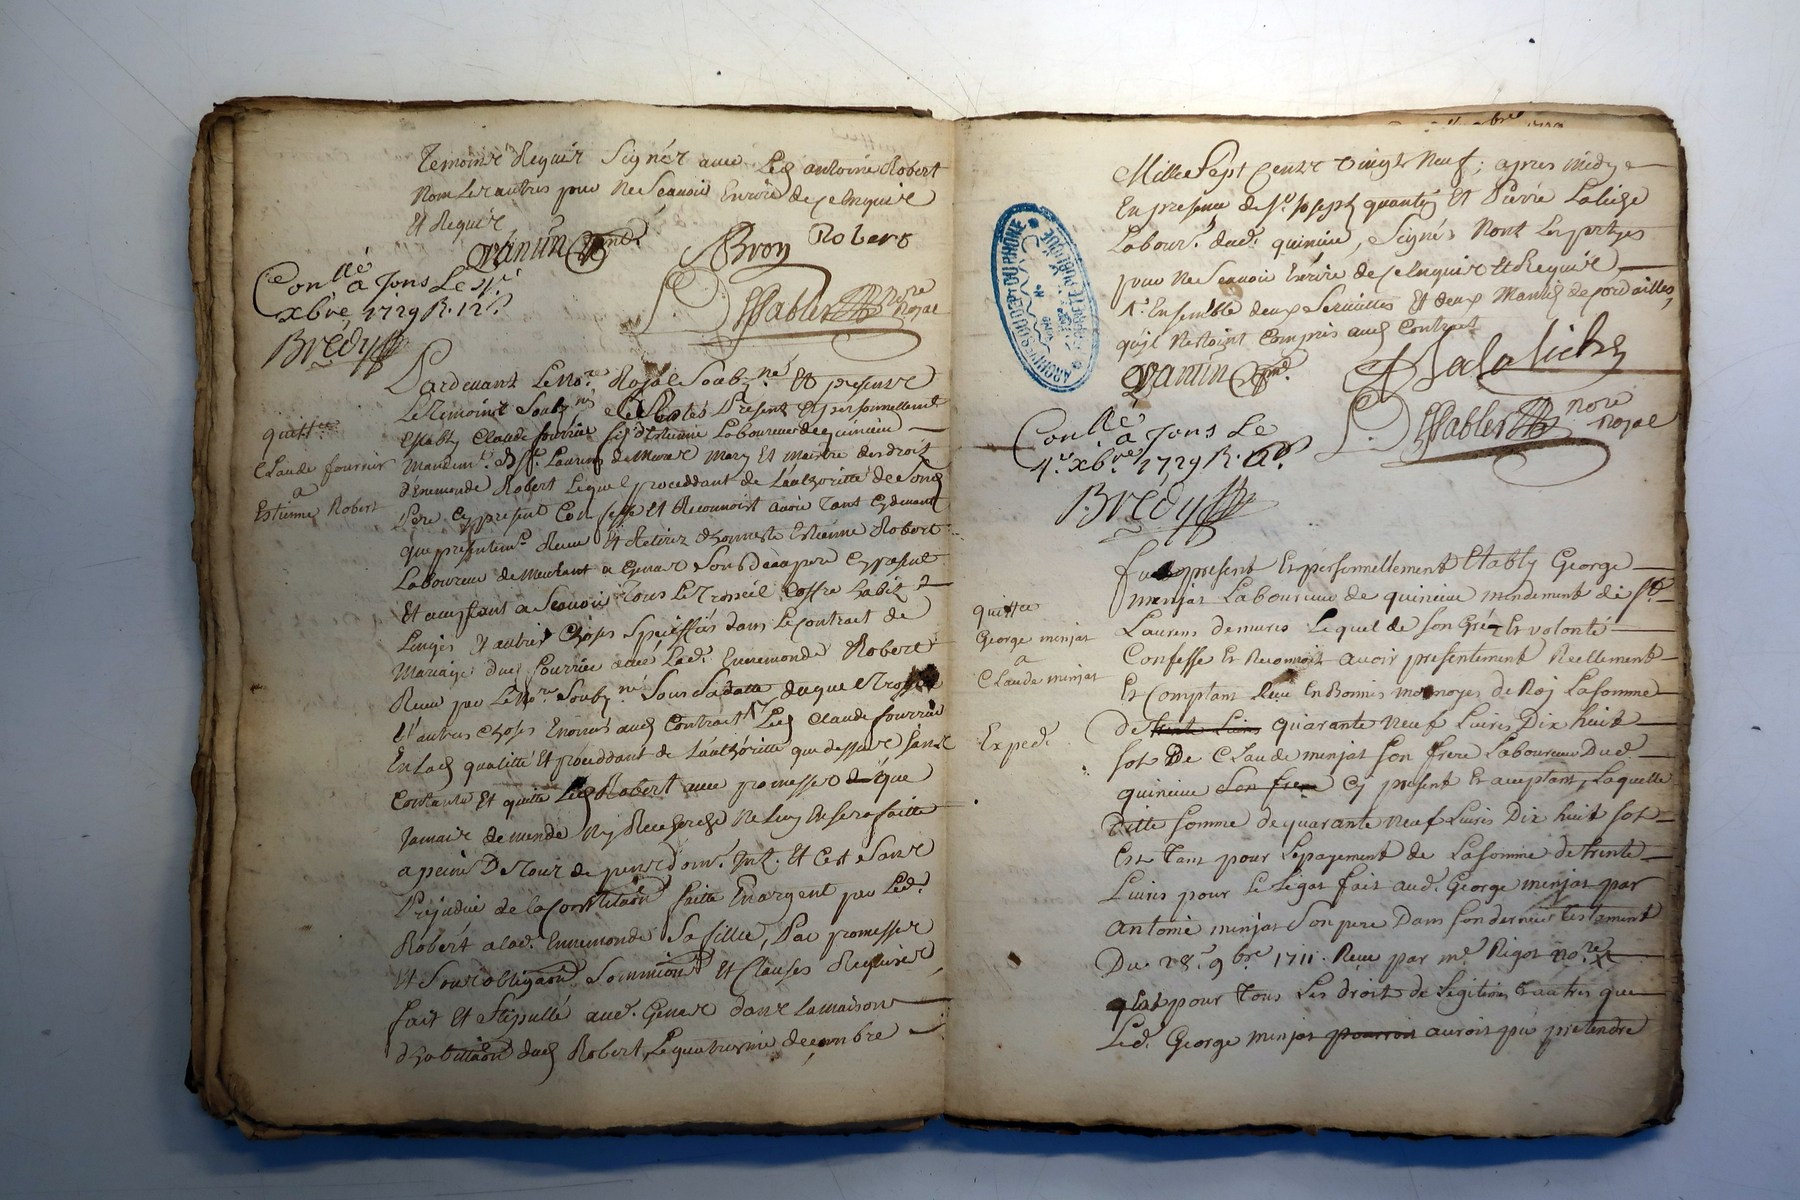 Temoins Requis Signés avec Led antoine Robert
Non Les autres pour Ne Scavoir Ecrire de ce Enquis
Et Requis
Vantin pnt. Bron Robert
Conllé a Jons Le 4e
xbre 1729 R. 12 s.
Brédy
Sablier Nore Royal
Pardevant Le No.re Royal Soub.né Et presents
Les Temoins Soub.nés Present Et personnellement
Estably Claude fourrier fils d'Estienne Laboureur de quincieu
Mandemt. de St. Laurens de Mure Mary Et Maistre des droits
d'Ennemonde Robert Lequel proceddant de L'authoritté de Son
Pere Cy present Confesse Et Reconnoit avoir Tant Cydevant
que presentemt. Receu Et Retirez d'honneste Estienne Robert
Laboureur de
quittce
Claude fournier
a
Estienne Robert
Et acceptant a Scavoir Tous Le Trosseil Coffre habitz
Linges Et autres Choses Speciffiés dans Le contract de
Mariage dud fourrier avec Lad. Ennemonde Robert
Receu par Le No.re Soub.né Sous Sa datte, duquel Trossel
Et autres Choses Enoncés aud Contract Led Claude fourrier
En Lad qualitté Et proceddant de L'authoritté que dessus Sans
Contante Et quitte Led Robert avec promesse que
Jamais demande Ny Recherche Ne Luy En Sera faitte
a peine De Tous depens dom. Int. Et C'est Sans
Prejudice de la Constitution faitte En argent par Led.
Robert a lad. Ennemonde Sa fille, Par promesses
Et Sous obligaon Soumission Et Clauses Requises,
fait Et Stipullé aud. Genas dans La maison
d'habittaon dud Robert, Le quatrieme decembre
Mille Sept Cents Vingt Neuf; apres midy
En presence de Sr. Joseph quantin Et Pierre Laliche
Labour.r dud. quincieu, Signés Nont Les partyes
pour Ne Scavoir Ecrire de ce Enquis Et Requis
Ensemble deux Serviettes Et deux
quil Nestoint Compris aud Contract
ARCHIVES DU DEPT DU RHONE
Vantin pnt. Laliche
Sablier Nore Royal
Conllé a Jons Le
4e xbre 1729 R.
Brédy
fut present Et personnellement Etably George
minjat Laboureur de quincieu mendement de St
quittce
George minjat
a
Claude minjat
Laurens demures Lequel de Son Gré Et volonté
Confesse Et Reconnoit avoir presentement Reellement
Et Comptant Receu En Bonnes monnoyes de Roj La Somme
Exped.
De trente Livres quarante Neuf Livres Dix huit
Sol De Claude minjat Son frere Laboureur Dud.
quincieu Son frere Cy present Et acceptant, Laquelle
Ditte Somme de quarante Neuf Livres Dix huit Sol
Est Tant pour Lepayement de La Somme de trente
Livres pour Le Legat fait aud. George minjat par
Antoine minjat Son pere Dans Son dernier testament
Du 28e 9bre 1711. Receu par me. Rigot no.re
pour Tous Les droits de Legitime Et autres que
Led. George minjat pourroit auroit pu pretendre